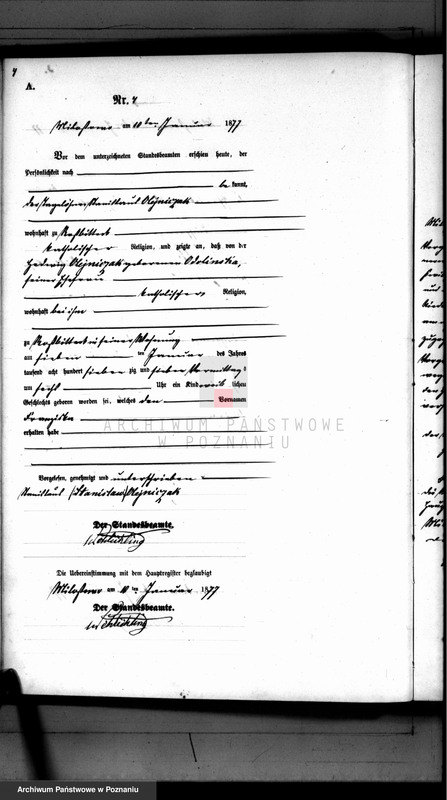 4
A.
Nr. 4
Miloslaw am 10ten Januar 1877
Vor dem unterzeichneten Standesbeamten erschien heute, der
Persönlichkeit nach
be kannt,
der Tagelöhner Stanislaus Olejniczak
wohnhaft zu
katholischer Religion, und zeigte an, daß von der
Hedwig Olejniczak geborenen
seiner Ehefrau
katholischer Religion,
wohnhaft bei ihm
zu in seiner Wohnung
am sieben ten Januar des Jahres
tausend acht hundert sieben zig und sieben Vormittags
um sechs Uhr ein Kind weib lichen
Geschlechts geboren worden sei, welches den Vornamen
Franziska
erhalten habe
ARCHIWUM PAŃSTWOWE
W POZNANIU
Vorgelesen, genehmigt und unterschrieben
Stanislaus (Stanislaw) Olejniczak
Der Standesbeamte.
Die Uebereinstimmung mit dem Hauptregister beglaubigt
Miloslaw am 10 ten Januar 1877
Der Standesbeamte.
Archiwum Państwowe w Poznaniu